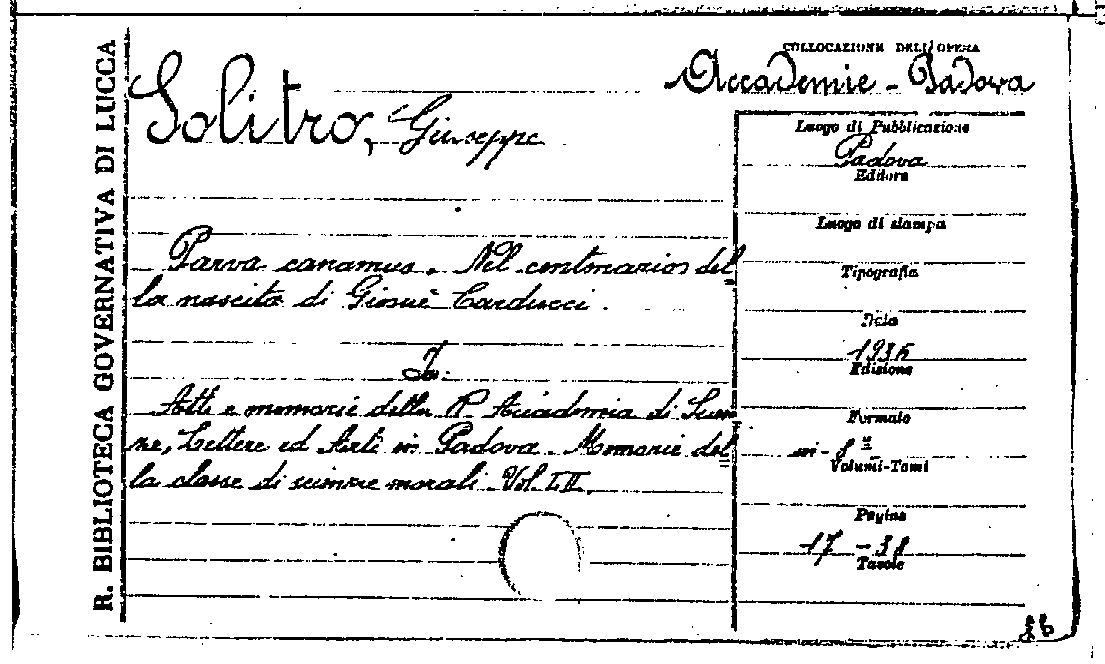 R. BIBLIOTECA GOVERNATIVA DI LUCCA
COLLOCAZIONE DELL'OPERA
Accademie - Padova
Solitro, Giuseppe
Parva canamus. Nel centenario del
la nascita di Giosuè Carducci.
In:
Atti e memorie della R. Accademia di Scien
ze, Lettere ed Arti in Padova. Memorie del
la classe di scienze morali. Vol. LII.
Luogo di Pubblicazione
Padova
Editore
Luogo di stampa
Tipografia
Data
Edizione
Formato
in-8º
Volumi-Tomi
Pagine
17-38
Tavole